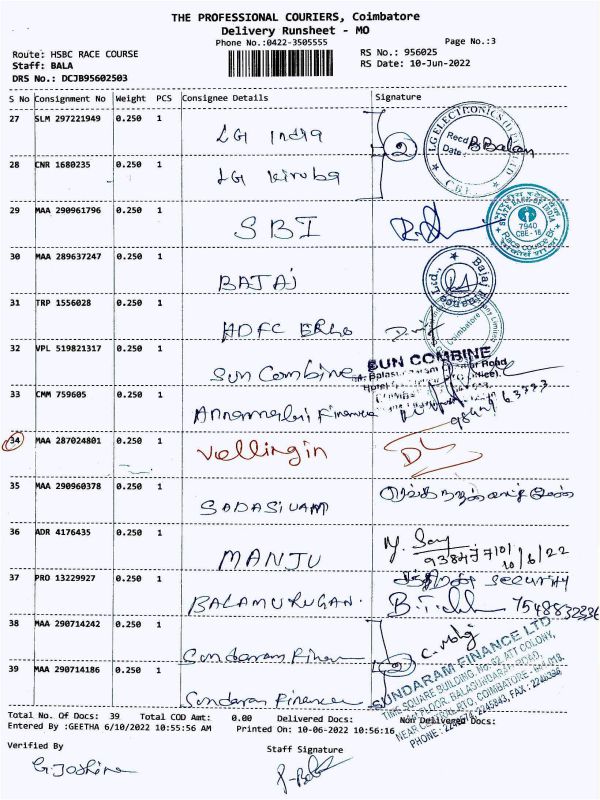 THE PROFESSIONAL COURIERS, Coimbatore
Delivery Runsheet - MO
Phone No.:0422-3505555
Page No.:3
Route: HSBC RACE COURSE
RS No.: 956025
Staff: BALA
RS Date: 10-Jun-2022
DRS No.: DCJB95602503
S No Consignment No Weight PCS Consignee Details Signature
27 SLM 297221949 0.250 1 LG India
2
LG ELECTRONICS (I) PVT LTD
Recd
Date: B Balan
CBE
28 CNR 1680235 0.250 1 LG Kiruba
29 MAA 290961796 0.250 1 SBI
STATE BANK OF INDIA
7940
CBE - 18
Race course Br
30 MAA 289637247 0.250 1 BAJAJ
Bajaj Finance Ltd.,
31 TRP 1556028 0.250 1 HDFC ERGO
Coimbatore
32 VPL 519821317 0.250 1 Sun Combine
SUN COMBINE
33 CMM 759605 0.250 1 Annamalai Finance
34 MAA 287024801 0.250 1 Vellingiri
DL
35 MAA 290960378 0.250 1 SADASIVAM
36 ADR 4176435 0.250 1 MANJU
10/6/22
37 PRO 13229927 0.250 1 BALAMURUGAN.
security
7548832236
38 MAA 290714242 0.250 1 Sundaram Finan
2
39 MAA 290714186 0.250 1 Sundaram Finance
SUNDARAM FINANCE LTD
TIME SQUARE BUILDING, NO. 62 ATT COLONY,
FLOOR, BALASUNDARAM ROAD,
COIMBATORE - 641 018
Total No. Of Docs: 39 Total COD Amt: 0.00 Delivered Docs: Non Delivered Docs:
Entered By :GEETHA 6/10/2022 10:55:56 AM Printed On: 10-06-2022 10:56:16
Verified By
Staff Signature
G. Joshine